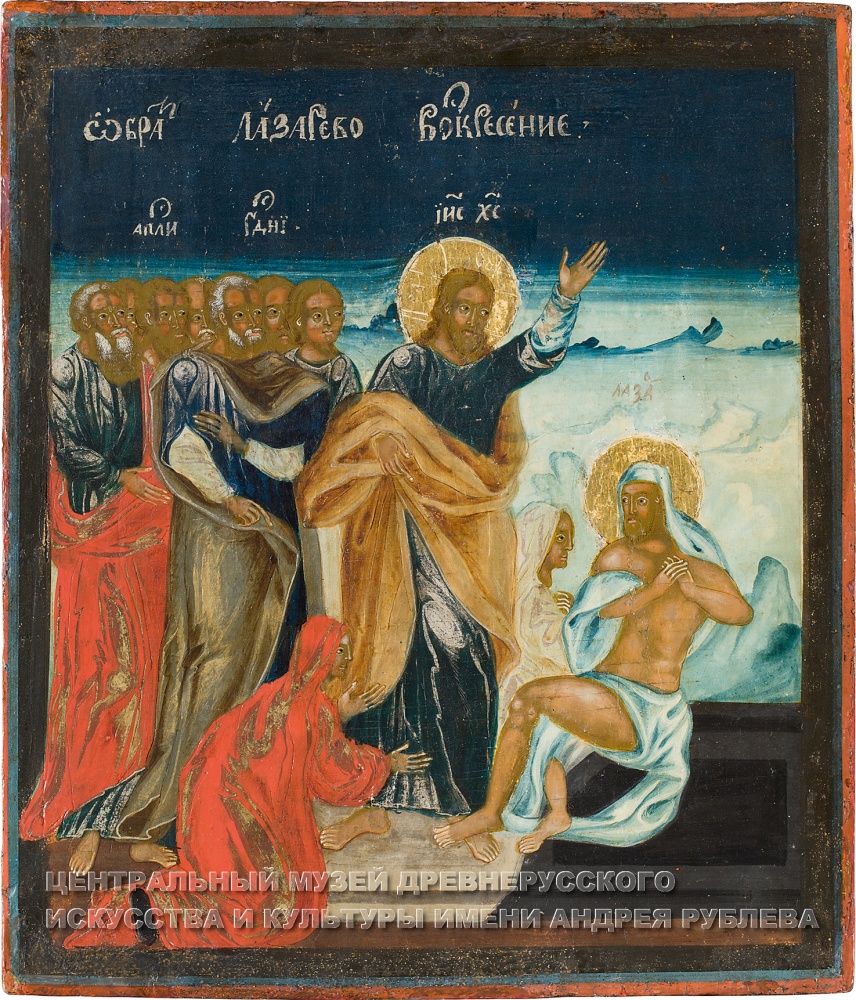 Ѡбра҃ Лазарево Воⷭ҇кресение.
апⷭ҇ли гⷭ҇дни
ІИ҃С Х҃С
Лаза
ЦЕНТРАЛЬНЫЙ МУЗЕЙ ДРЕВНЕРУССКОГО
ИСКУССТВА И КУЛЬТУРЫ ИМЕНИ АНДРЕЯ РУБЛЕВА